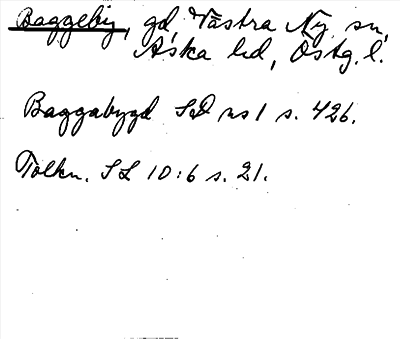 Baggeby, gd, Västra Ny sn,
Aska hd, Östg. l.
Baggabygd SD ns 1 s. 426.
Tolkn. SL 10:6 s. 21.